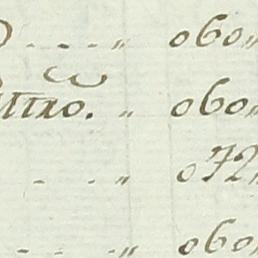 - - - - „ 060„
ttro. „ 060„
- - „ 072„
- - - „ 060„